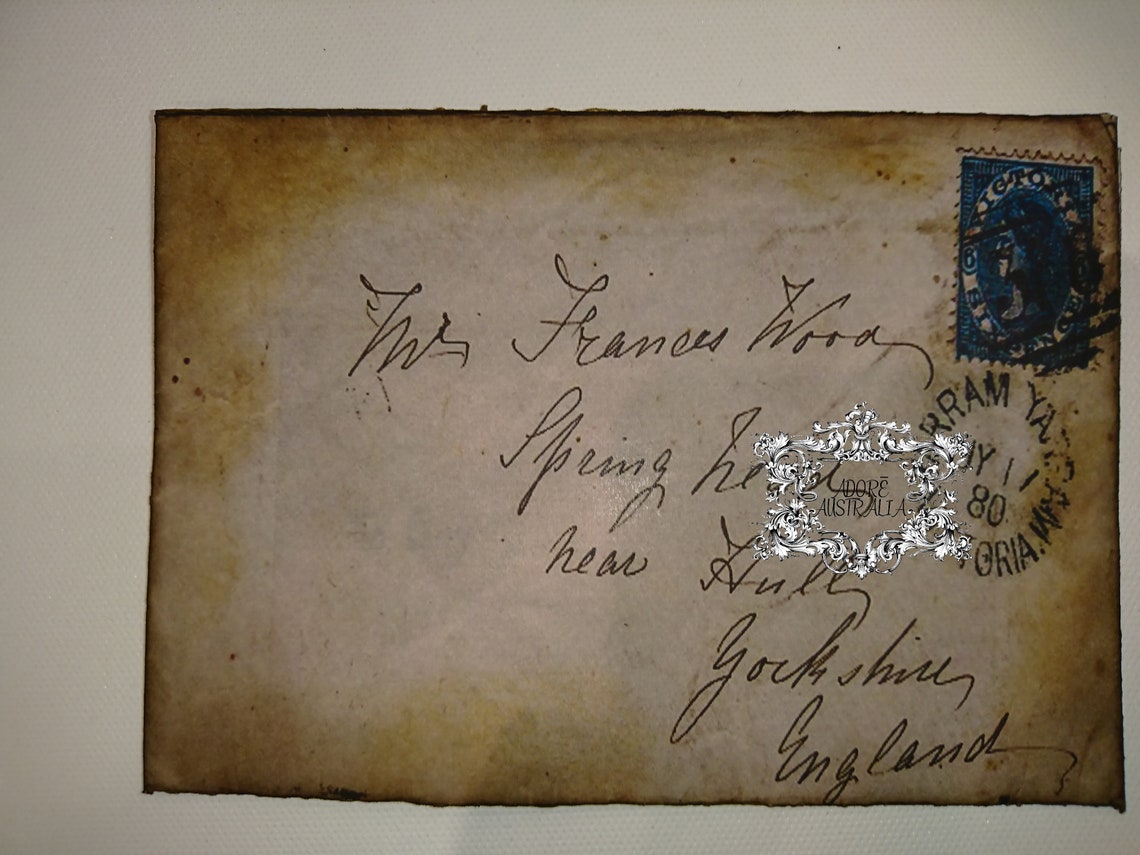 VICTORIA
6
SIX PENCE
Mrs Frances Wood
Spring head
near Hull
Yorkshire
England
RRAM YA
Y 11
80
ORIA.
ADORĒ
AUSTRALIA